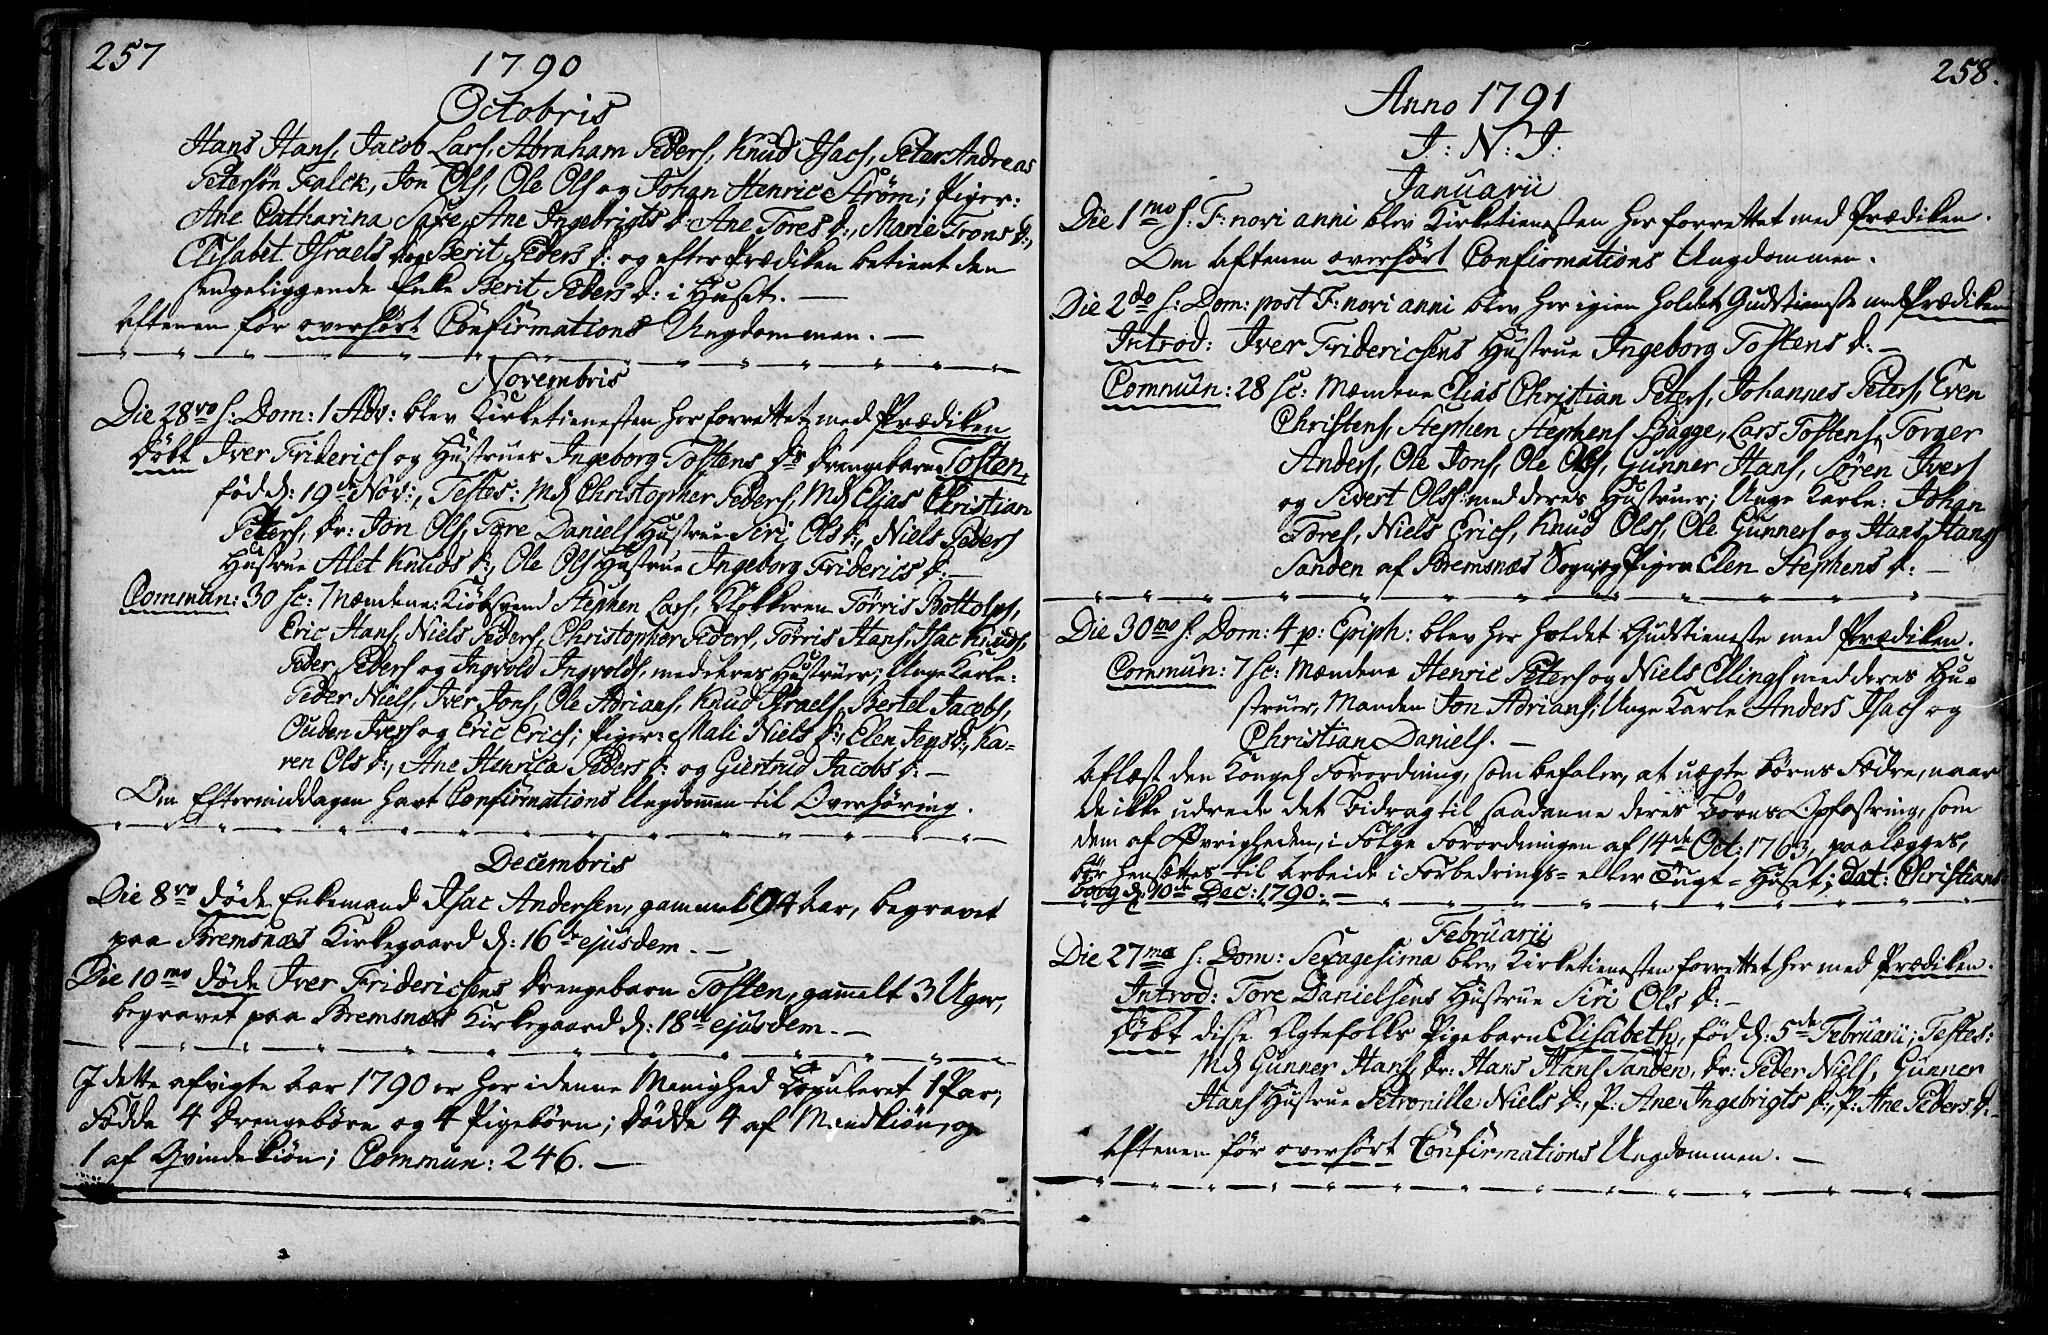 257
1790
Octobris
Hans Hans, Jacob Lars, Abraham Peders, Knud Isacs, Peter Andreas
Petersøn Falck, Jon Ols, Ole Ols og Johan Henric Strøm; Piger:
Ane Catharina Saxe, Ane Ingebrigts d: Ane Tores d:, Marie Trons d:,
Elisabet Israels d: og Berit Peders d: og efter Prædiken betient den
sengeliggende Enke Berit Peders d: i Huset. —
Aftenen før overhørt Confirmations Ungdommen. —
Novembris
Die 28vo s: Dom: 1 Adv: blev Kirketienesten her forrettet med Prædiken
Døbt Iver Friderics og Hustrues Ingeborg Tostens ds drengebarn Tosten,
fød d: 19de Nov:, Testes: Md Christopher Peders, Md Elias Christian
Peters, dr: Jon Ols, Tore Daniels Hustrue Siri Ols d:, Niels Peders
Hustrue Alet Knuds d:, Ole Ols Hustrue Ingeborg Friderics d: —
Commun: 30 sc: Mændene: Kiøbsvend Stephen Lars, Klokkeren Tørris Bottolvs,
Eric Hans, Niels Peders, Christopher Peders, Tørris Hans, Isac Knuds,
Peder Peders og Ingvold Ingvolds, med deres Hustruer; Unge Karle:
Peder Niels, Iver Jons, Ole Adrians, Knud Israels, Bertel Jacobs,
Ouden Ivers og Eric Erics; Piger: Mali Niels d:, Elen Jens d:, Ka-
ren Ols d:, Ane Henrica Peders d: og Giertrud Jacobs d: —
Om Eftermiddagen havt Confirmations Ungdommen til Overhøring.
Decembris
Die 8vo døde Enkemand Isac Andersen, gammel 94 Aar, begravet
paa Bremsnæs Kirkegaard d: 16de ejusdem. —
Die 10mo døde Iver Friderichsens drengebarn Tosten, gammelt 3 Uger,
begravet paa Bremsnæs Kirkegaard d: 18de ejusdem. —
I dette afvigte Aar 1790 er her i denne Menighed Copuleret 1 Par,
Fødde 4 drengebørn og 4 Pigebørn; dødde 4 af Mandkiøn, og
1 af Qvindekiøn; Commun: 246. —
258.
Anno 1791
I: N: J:
Januarii
Die 1mo s: F: novi anni blev Kirketienesten her forrettet med Prædiken.
Om Aftenen overhørt Confirmations Ungdommen.
Die 2do s: Dom: post F: novi anni blev her igien holdet Gudstieneste med Prædiken
Introd: Iver Friderichsens Hustrue Ingeborg Tostens d: —
Commun: 28 sc: Mændene Elias Christian Peters, Johannes Peters, Even
Christens, Stephen Stephens Bagge, Lars Tostens, Torger
Anders, Ole Jons, Ole Ols, Gunner Hans, Søren Ivers
og Sivert Ols med deres Hustruer; Unge Karle: Johan
Tores, Niels Erics, Knud Ols, Ole Gunners og Hans Hans
Sanden af Bremsnæs Sogn, og Pigen Elen Stephens d: —
Die 30mo s: Dom: 4 p: Epiph: blev her holdet Gudstieneste med Prædiken.
Commun: 7 sc: Mændene Henric Peters og Niels Ellings med deres Hu-
struer, Manden Jon Adrians; Unge Karle Anders Isacs og
Christian Daniels. —
Aflæst den Kongel Forordning, som befaler, at uægte Børns Fædre, naar
de ikke udrede det Bidrag til saadanne deres Børns Opfostring, som
dem af Øvrigheden, i Følge Forordningen af 14de Oct: 1763, paalægges,
bør hensættes til Arbeide i Forbedrings= eller Tugt=Huset; dat: Christians-
borg d: 10de Dec: 1790: —
Februarii
Die 27ma s: Dom: Sexagesima blev Kirketienesten forrettet her med Prædiken.
Introd: Tore Danielsens Hustrue Siri Ols d: —
Døbt disse Ægtefolks Pigebarn Elisabeth, fød d: 5de Februarii; Testes:
Md Gunner Hans, dr: Hans Hans Sanden, dr: Peder Niels, Gunner
Hans Hustrue Petronille Niels d:, P: Ane Ingebrigts d:, P: Ane Peders d: —
Aftenen før overhørt Confirmations Ungdommen. —